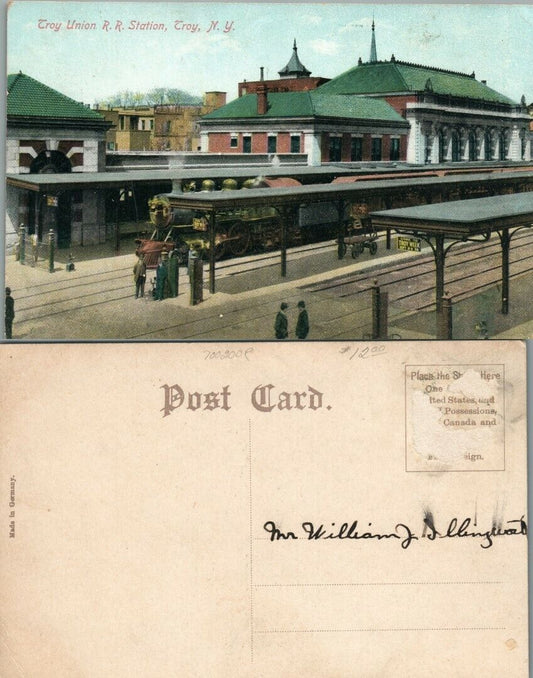 Troy Union R. R. Station, Troy, N. Y.
700200P
$12.00
Post Card.
Place the St Here
One
ited States, and
Possessions,
Canada and
eign.
Made in Germany.
Mr William J.